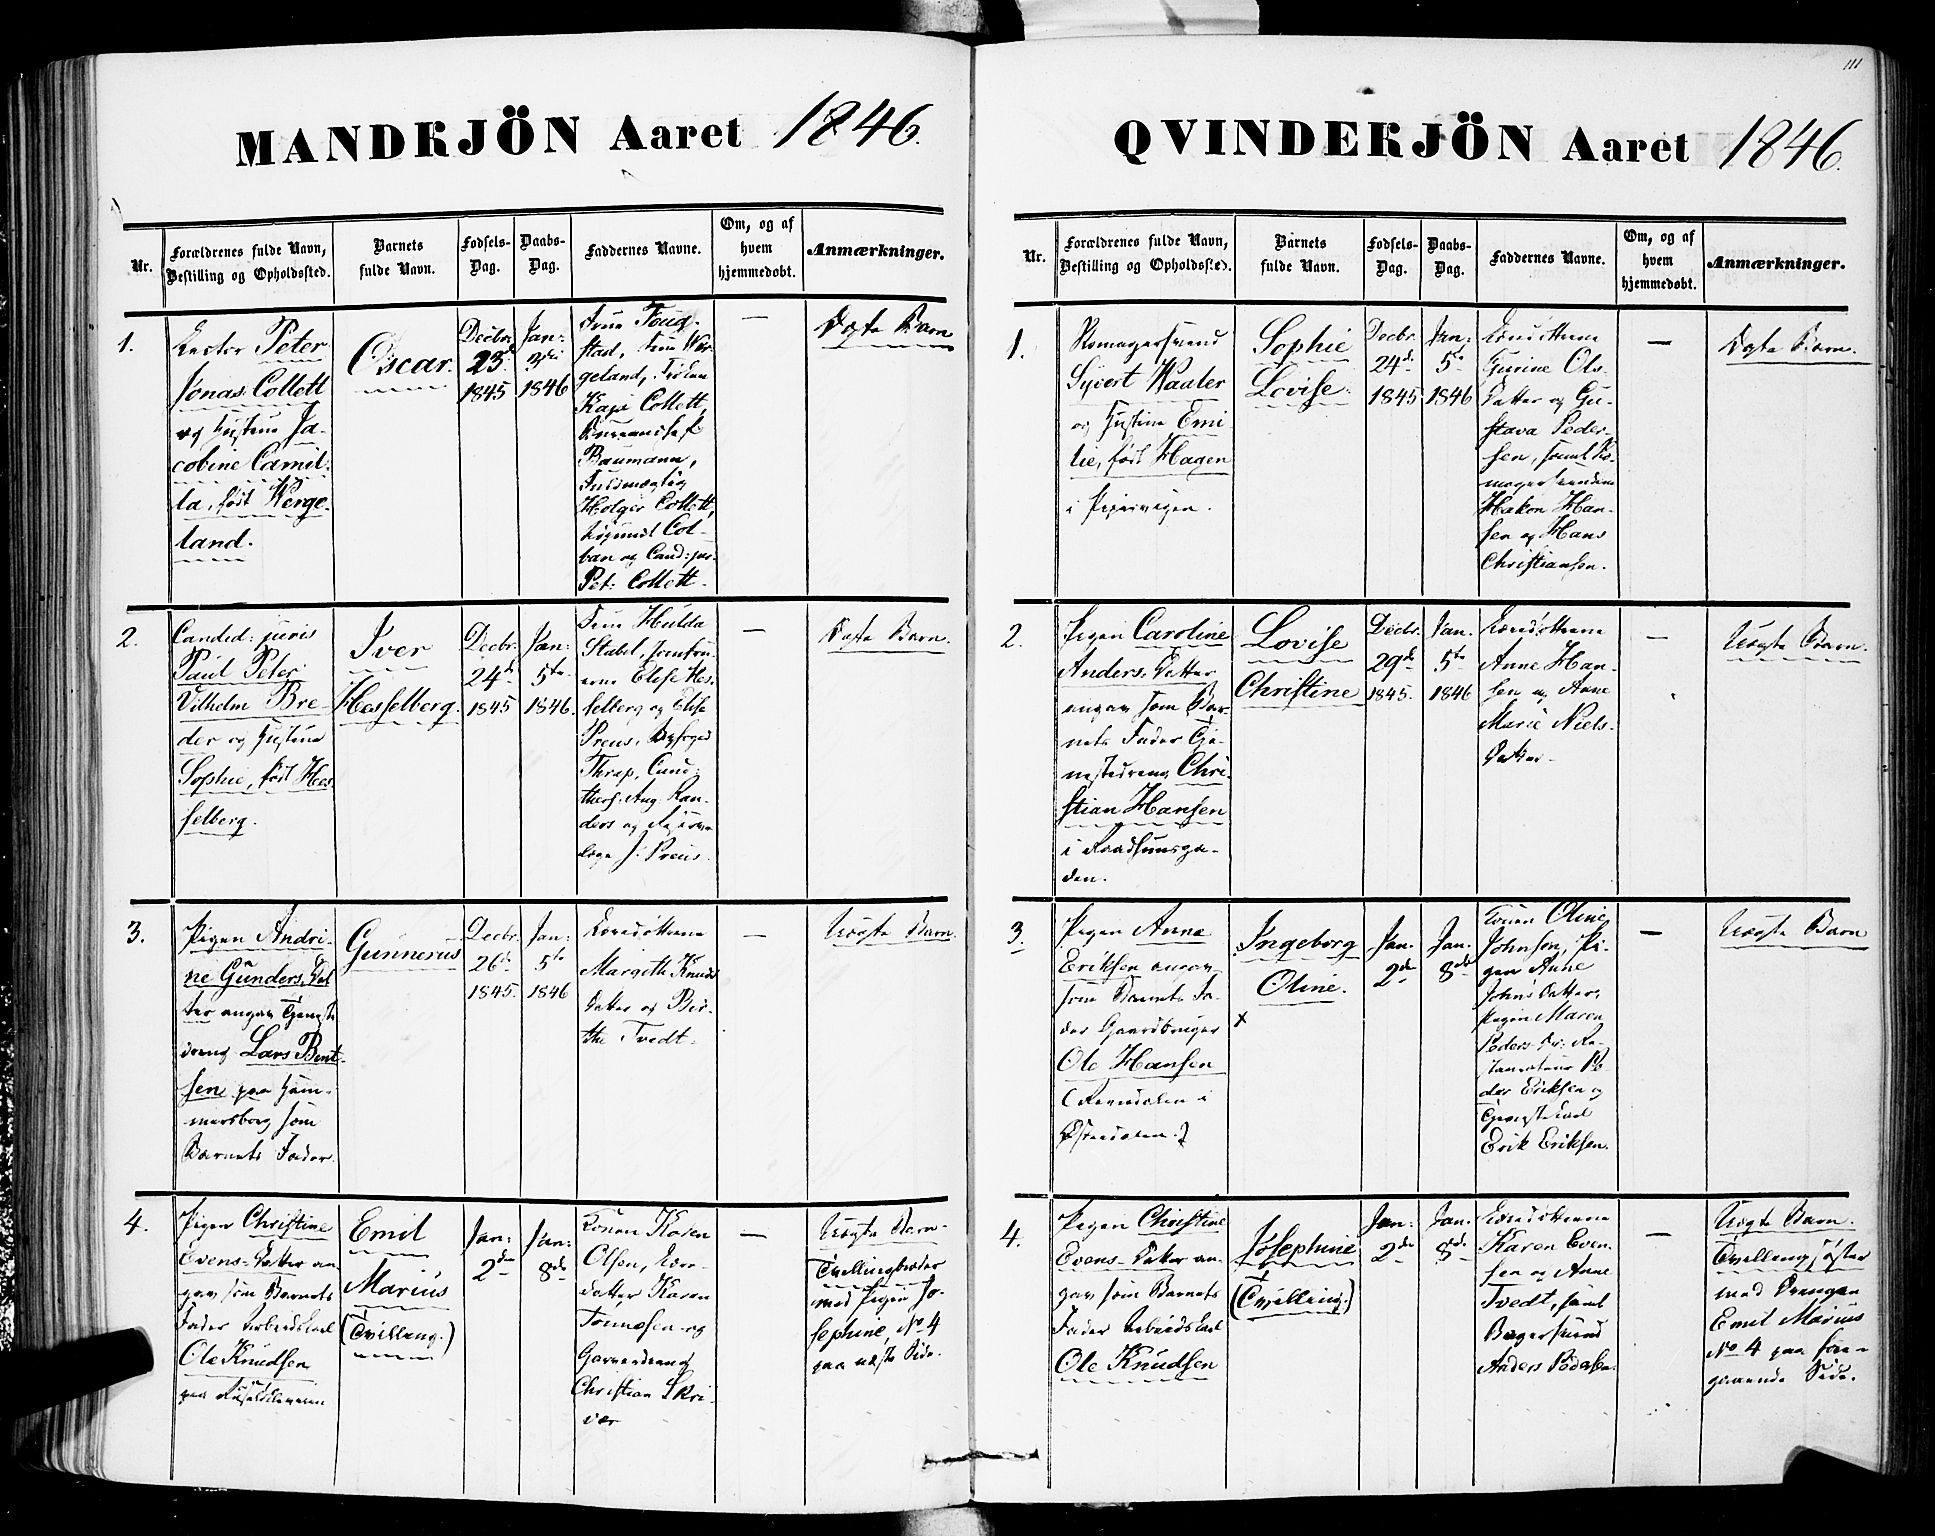 MANDKJÖN Aaret 1846.
Nr.
Forældrenes fulde Navn,
Bestilling og Opholdsted.
Barnets
fulde Navn.
Fødsels-
Dag.
Daabs-
Dag.
Faddernes Navne.
Om, og af
hvem
hjemmedøbt.
Anmærkninger.
1.
Lector Peter
Jonas Collett
og Hustru Ja-
cobine Camil-
la, født Werge-
land.
Oscar.
Decbr
23d
1845
Jan:
1846
Frue Foug-
stad, Frue Wer-
geland, Frøken
Kaja Collett,
Bureauchef
Baumann,
Fuldmægtig
Holger Collett,
Col-
ban og Cand: jur.
Pet: Collett.
—
Ægte Barn
2.
Candid: juris
Paul Peter
Vilhelm Bre-
der og Hustrue
Sophie, født Hes-
selberg.
Iver
Hesselberg.
Decbr.
24d
1845
Jan:
5te
1846.
Frue Hulda
Stabel, Jomfru-
erne Elise Hes-
selberg og Elise
Preus, Byfoged
Thrap, Cand:
theol: Aug. Ran-
ders og
J. Preus.
—
Ægte Barn.
3.
Pigen Andri-
ne Gunders Dat-
ter angav Tjeneste
dreng Lars Bent-
sen paa Ham-
mersborg som
Barnets Fader.
Gunnerius
Decbr.
26d
1845.
Jan:
5te
1846
Konerne
Margith Knuds
Datter og Bir-
the Tvedt.
—
Uægte Barn.
4.
Pigen Christine
Evens-Datter an-
gav som Barnets
Fader Arbeidskarl
Ole Knudsen
paa
Emil
Marius
(Tvilling.)
Jan:
2de
Jan:
8de
Konen Karen
Olsen,
datter Karen
Tonnesen og
Garverdreng
Christian Skri-
ver
—
Uægte Barn-
Tvillingbroder
med Pigen Jo-
sephine, No 4
paa næste Side.
111
QVINDEKJÖN Aaret 1846.
Nr.
Forældrenes fulde Navn,
Bestilling og Opholdsted.
Barnets
fulde Navn.
Fødsels-
Dag.
Daabs-
Dag.
Faddernes Navne.
Om, og af
hvem
hjemmedøbt.
Anmærkninger.
1.
Skomagersvend
Syvert Waaler
og Hustrue Emi-
lie, født Hagen
i Pipervigen.
Sophie
Lovise.
Decbr.
24d
1845
Jan:
5te
1846
Konerne
Gurine Ols
Datter og Gu-
stava Peder-
sen, samt Sko-
magersvendene
Hakon Han-
sen og Hans
Christiansen.
—
Ægte Barn.
2.
Pigen Caroline
Anders-Datter
angav som Bar-
nets Fader Tje-
nestedreng Chri-
stian Hansen
i Raadhuusga-
den.
Lovise
Christine
Decbr.
29de
1845.
Jan.
5te
1846
Konerne
Anne Han-
sen og Anne
Marie Niels-
Datter.
—
Uægte Barn.
3.
Pigen Anne
Eriksen angav
som Barnets Fa-
der Gaardbruger
Ole Hansen
i
Østerdalen.)
Ingeborg
Oline.
x
Jan.
2de
Jan.
8de
Konen Oline
Johnsen, Pi-
gen Anne
Johns Datter,
Pigen Maren
Peders Dr.
Pe-
der Eriksen og
Tjenestekarl
Erik Eriksen.
—
Uægte Barn
4.
Pigen Christine
Evens-Datter an-
gav som Barnets
Fader Arbeidskarl
Ole Knudsen
Josephine
(Tvilling.)
Jan:
2de
Jan.
8de
Konerne
Karen Even-
sen og Anne
Tvedt, samt
Bagersvend
Anders Pedersen.
—
Uægte Barn.
Tvillingsøster
med Drengen
Emil Marius
No 4 paa fore-
gaaende Side.